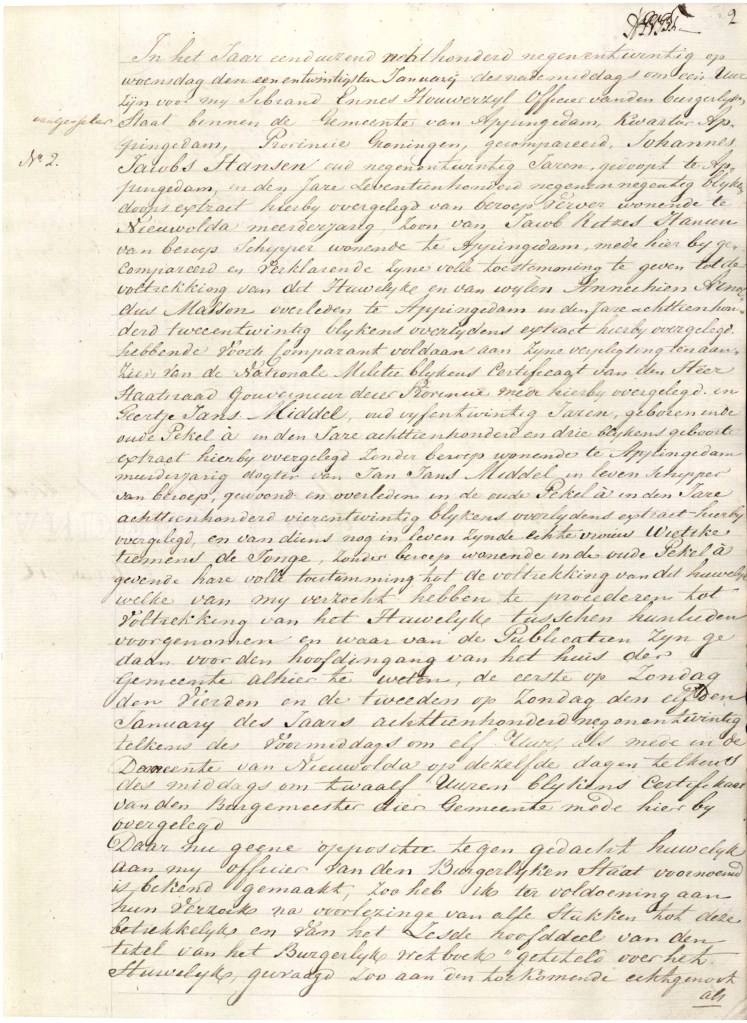 2
In het Jaar eenduizend achthonderd negenentwintig op
woensdag den eenentwintigsten Januarij des nademiddags om een Uur
zijn voor my Sibrand Ennes Houwerzyl Officier van den burgerlyken
Staat binnen de Gemeente van Appingedam, Kwartier Ap-
pingedam, Provincie Groningen, gecompareerd, Johannes
N° 2.
Jacobs Hansen oud negenentwintig Jaren, gedoopt te Ap-
pingedam, in den Jare Zeventienhonderd negenennegentig blykens
doops extract hierby overgelegd van beroep Verver wonende te
Nieuwolda meerderjarig, Zoon van Jacob Ritzes Hansen
van beroep Schipper wonende te Appingedam, mede hier by ge-
compareerd en verklarende Zyne volle toestemming te geven tot de
voltrekking van dit Huwelyk en van wylen Annechien Arnol
dus Matson overleden te Appingedam in den Jare achttienhon-
derd tweeentwintig blykens overlydens extract hierby overgelegd.
hebbende voorts Comparant voldaan aan Zyne verpligting ten aan-
zien van de Nationale Militie blykens Certificaat van den Heer
Staatsraad Gouverneur dezer Provincie mede hierby overgelegd. en
Geertje Jans Middel, oud vyfentwintig Jaren, geboren in de
oude Pekel à in den Jare achttienhonderd en drie blykens geboorte
extract hierby overgelegd Zonder beroep wonende te Appingedam
meerderjarig dogter van Jan Jans Middel in leven Schipper
van beroep, gewoond en overleden in de oude Pekel à in den Jare
achttienhonderd vierentwintig blykens overlydens extract hierby
overgelegd, en van diens nog in leven Zynde echte vrouw Wietske
tiemens de Jonge, Zonder beroep wonende in de oude Pekel à
gevende hare volle toestemming tot de voltrekking van dit huwelyk
welke van my verzocht hebben te procederen tot
Voltrekking van het Huwelyk tusschen hunlieden
voorgenomen en waar van de Publicatien Zyn ge
daan voor den hoofdingang van het huis der
Gemeente alhier te weten, de eerste op Zondag
den Vierden en de tweeden op Zondag den elfden
January des Jaars achttienhonderd negenentwintig
telkens des Voormiddags om elf Uure, als mede in de
Gemeente van Nieuwolda op dezelfde dagen telkens
des middags om twaalf Uuren blykens Certifikaat
van den Burgemeester dier Gemeente mede hier by
overgelegd
Daar nu geene oppositie tegen gedacht huwelyk
aan my officier van den Burgerlyken Staat voornoemd
is bekend gemaakt, Zoo heb ik ter voldoening aan
hun Verzoek na voorlezinge van alle Stukken tot deze
betrekkelyk en van het Zesde hoofddeel van den
titel van het Burgerlyk wetboek "getiteld over het
Huwelyk, gevraagd Zoo aan den toekomende echtgenoot
als